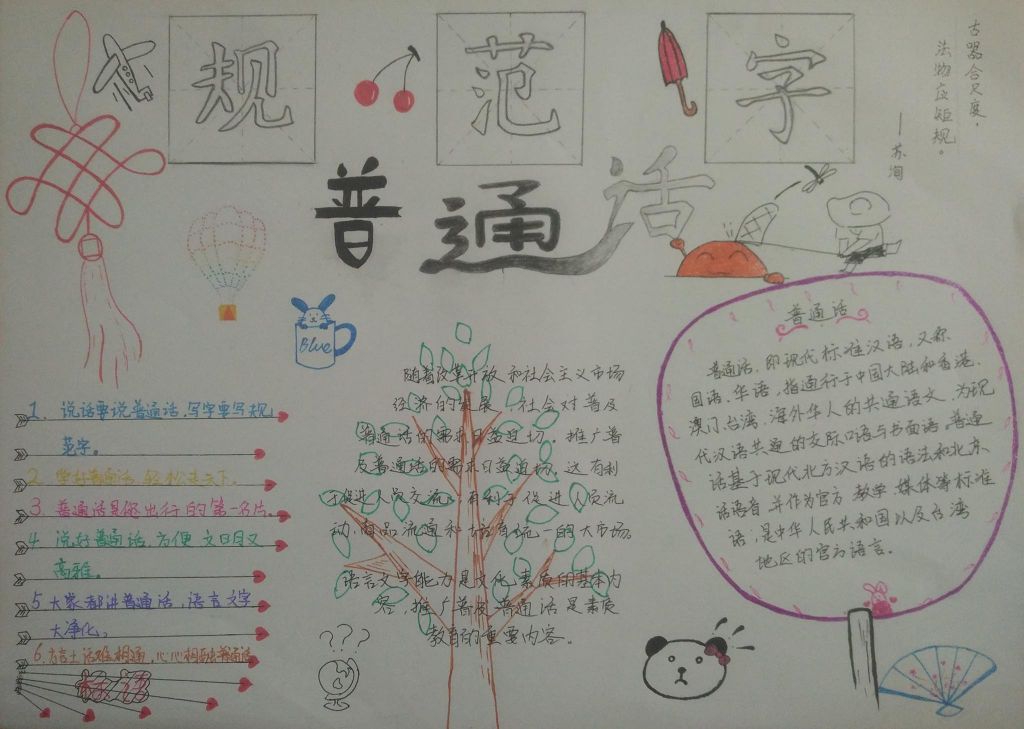 规范字
普通话
古器合尺度，
法物应矩规。
——苏洵
Blue
1. 说话要说普通话，写字要写规
范字。
2. 学好普通话，轻松走天下。
3. 普通话是你出行的第一名片。
4. 说好普通话，方便文明又
高雅。
5. 大家都讲普通话，语言文字
大净化。
6. 方言土话难相通，心心相融普通话
标语
随着改革开放和社会主义市场
经济的发展，社会对普及
普通话的需求日益迫切。推广普
及普通话的需求日益迫切，这有利
于促进人员交流，有利于促进人员流
动，商品流通和培育统一的大市场。
语言文字能力是文化素质的基本内
容，推广普及普通话是素质
教育的重要内容。
???
普通话
普通话，即现代标准汉语，又称
国语、华语，指通行于中国大陆和香港、
澳门、台湾，海外华人的共通语文，为现
代汉语共通的交际口语与书面语。普通
话基于现代北方汉语的语法和北京
话语音并作为官方、教学、媒体等标准
语，是中华人民共和国以及台湾
地区的官方语言。